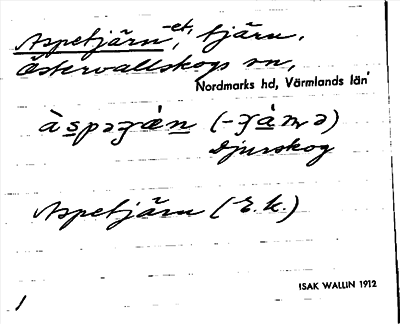 Aspetjärn -et, tjärn,
Östervallskogs sn,
Nordmarks hd, Värmlands län
Djurskog
Aspetjärn (E.k.)
ISAK WALLIN 1912
1